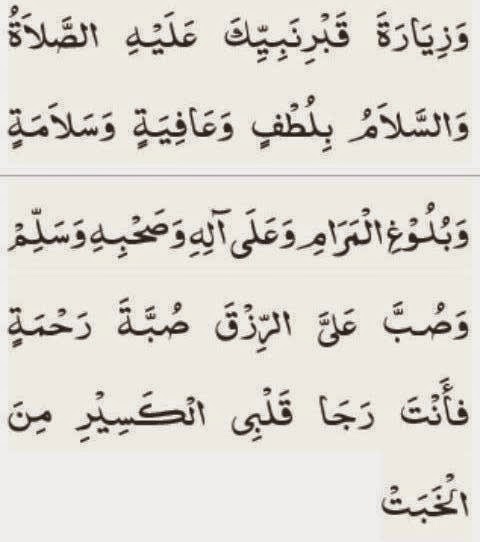 وَزِيَارَةَ قَبْرِنَبِيِّكَ عَلَيْهِ الصَّلاَةُ
وَالسَّلاَمُ بِلُطْفٍ وَعَافِيَةٍ وَسَلاَمَةٍ
وَبُلُوْغِ الْمَرَامِ وَعَلَى آلِهِ وَصَحْبِهِ وَسَلِّمْ
وَصُبَّ عَلَيَّ الرِّزْقَ صُبَّةَ رَحْمَةٍ
فأَنْتَ رَجَا قَلْبِى الْكَسِيْرِ مِنَ
الْخَبَتْ